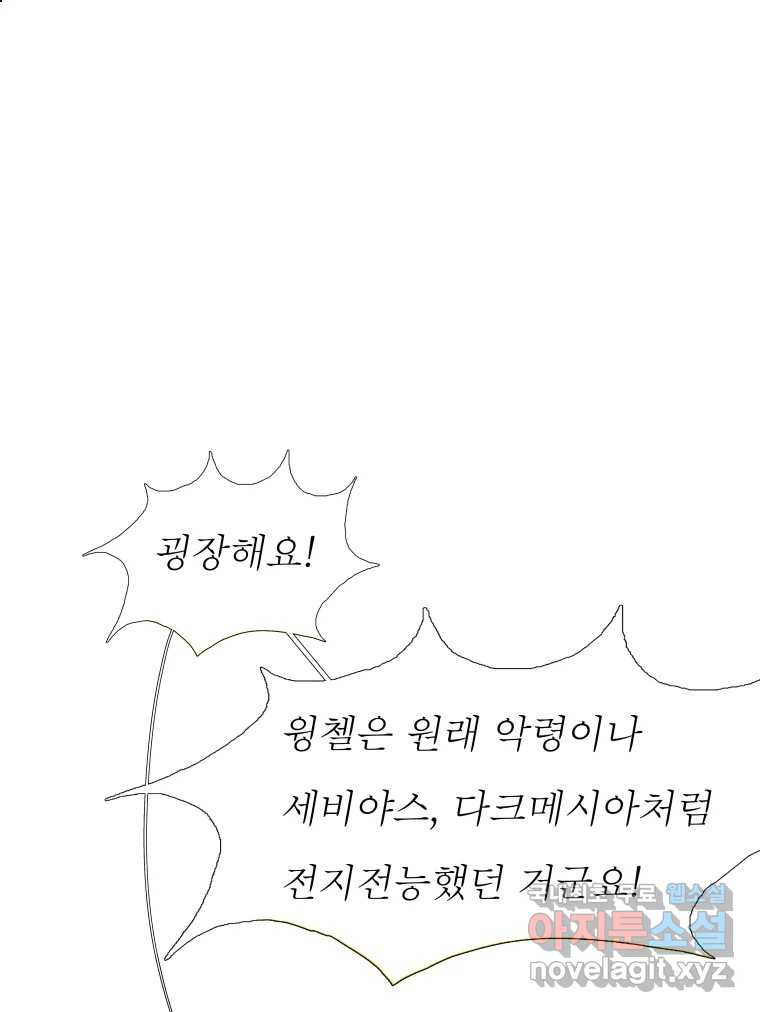 굉장해요!
윙첼은 원래 악령이나
세비야스, 다크메시아처럼
전지전능했던 거군요!
국내최초 무료 웹소설
아지툰소설
novelagit.xyz